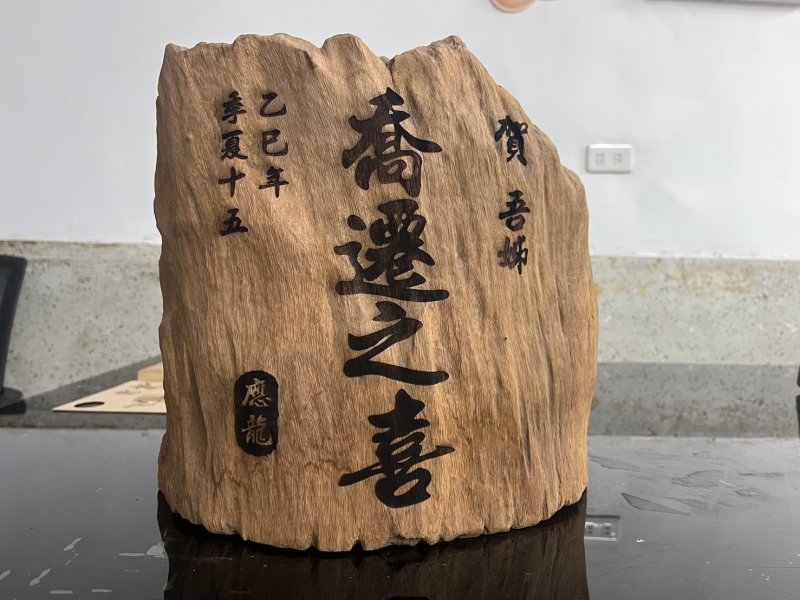 賀 吾姊
喬遷之喜
乙巳年
季夏十五
應龍